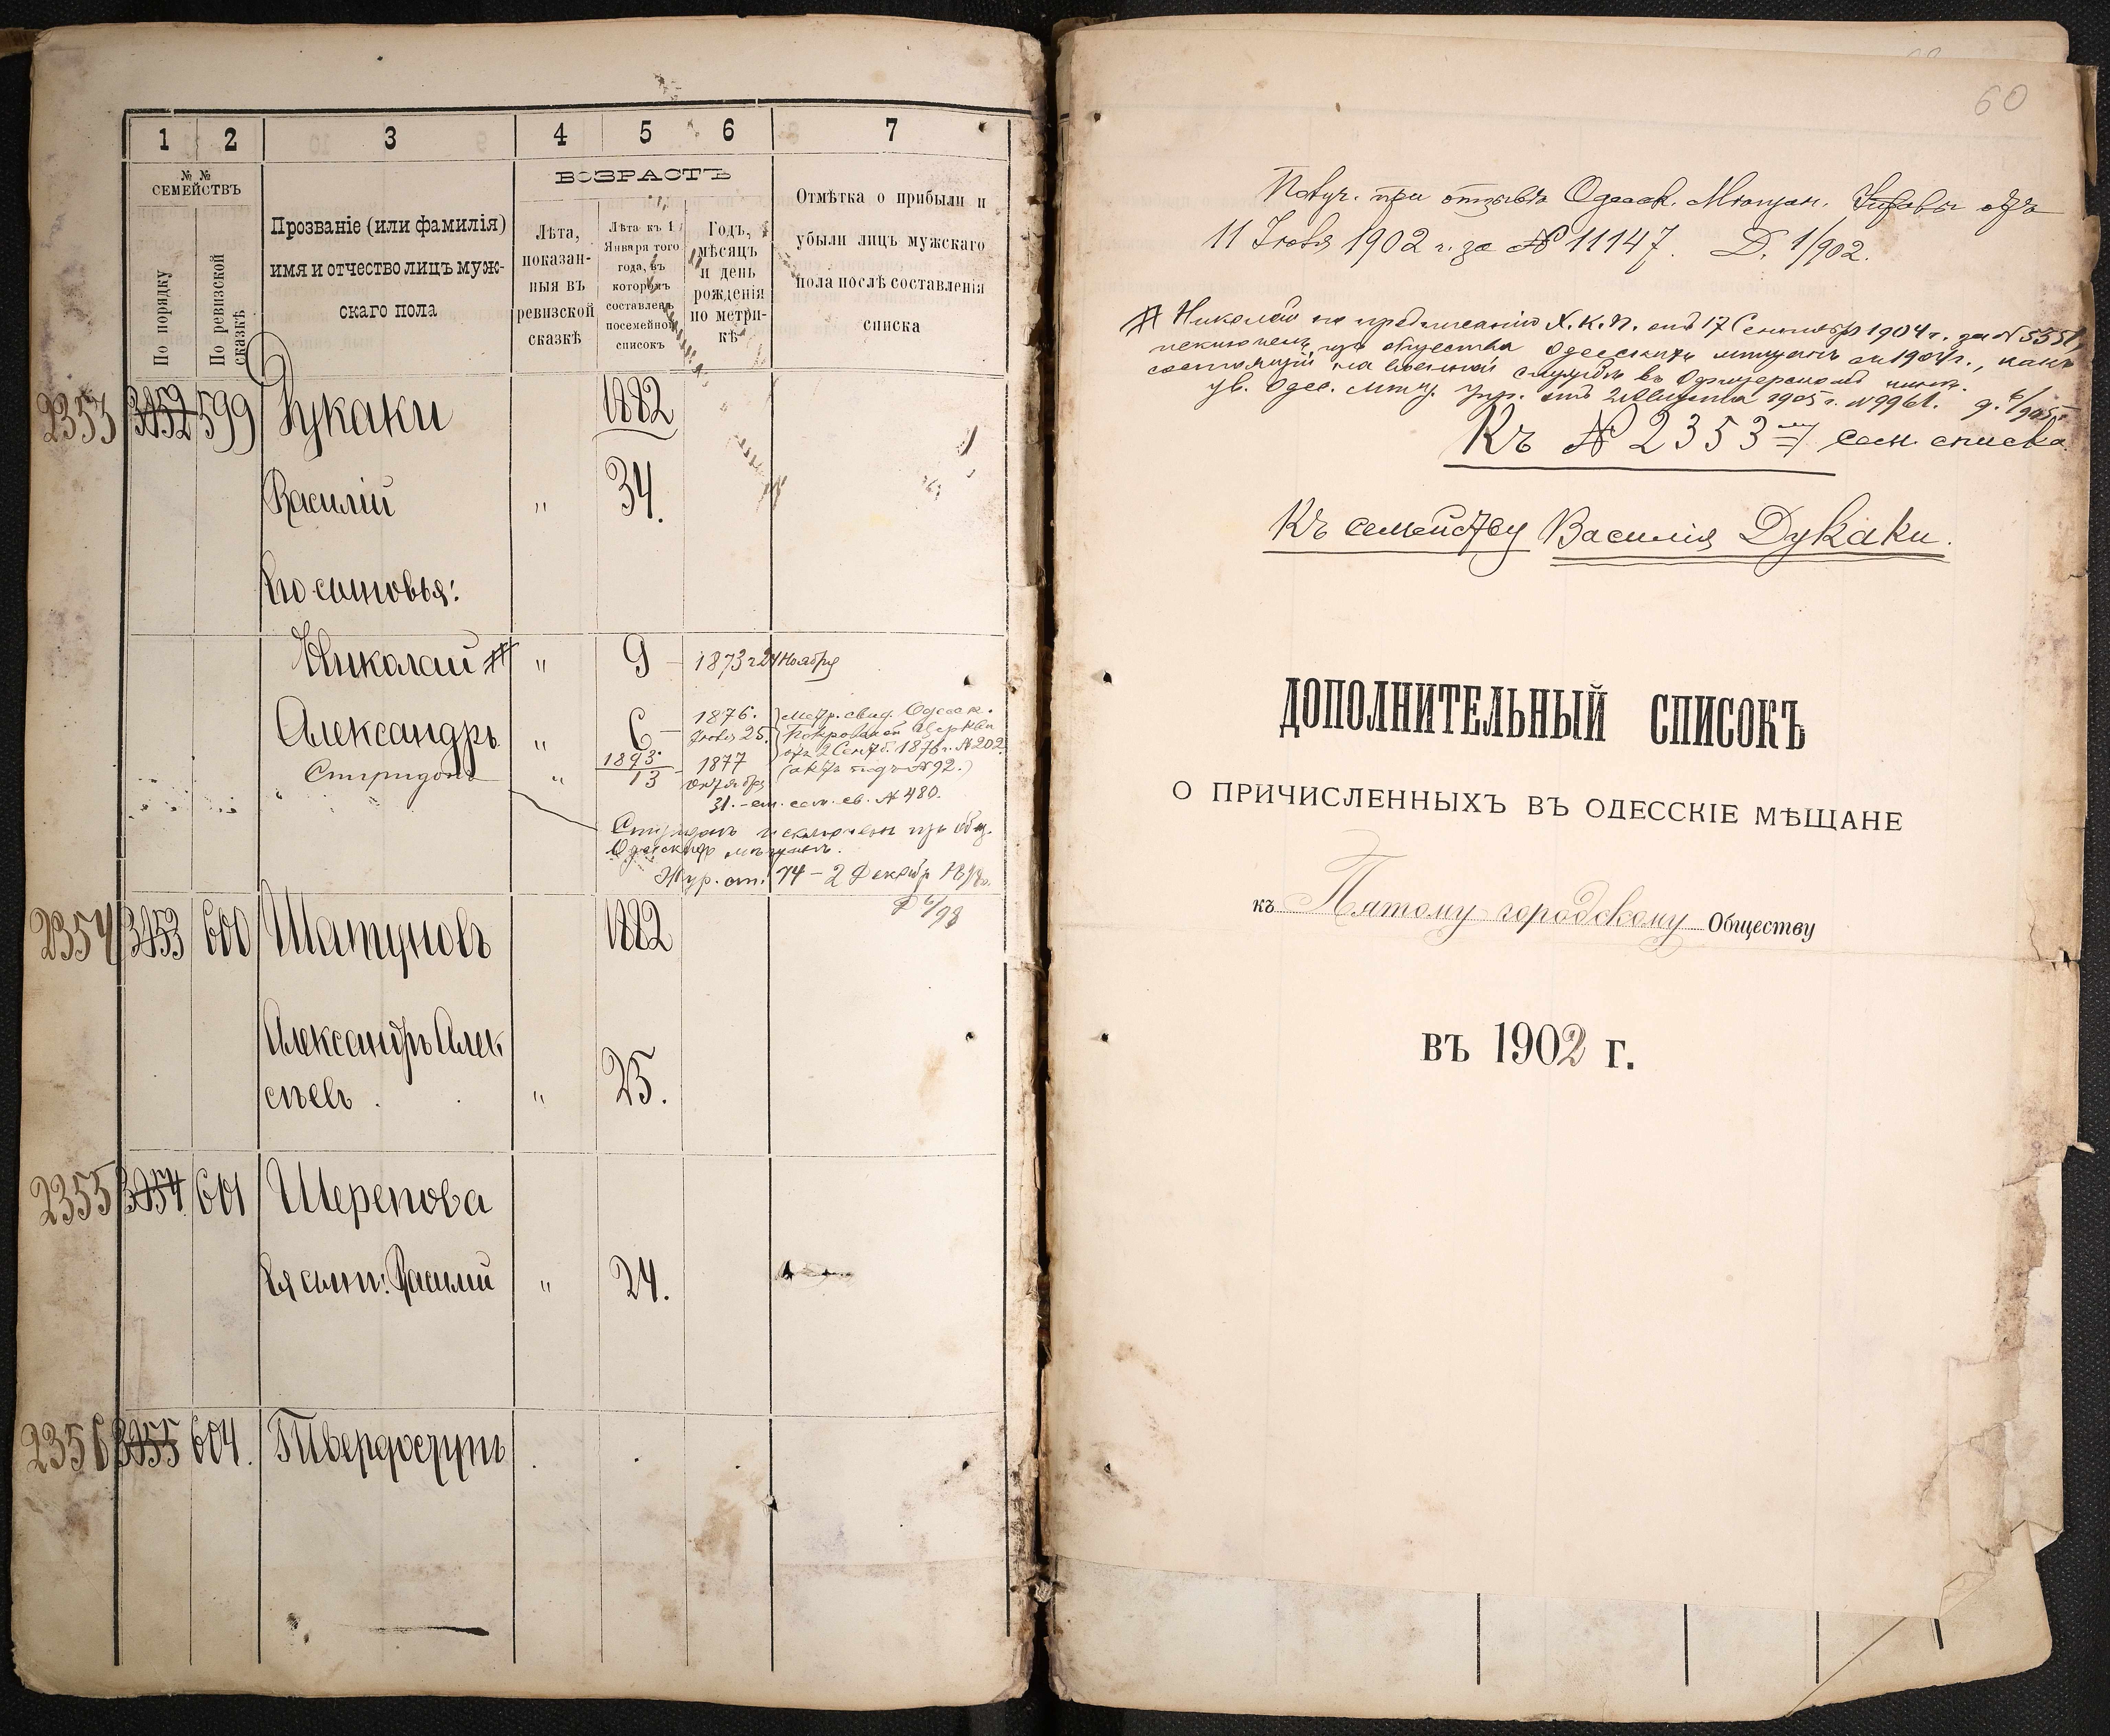 1 2 3 4 5 6 7
№ №
СЕМЕЙСТВЪ
По порядку
По ревизской
сказкѣ
Прозваніе (или фамилія)
имя и отчество лицъ муж-
скаго пола
ВОЗРАСТЪ
Лѣта,
показан-
ныя въ
ревизской
сказкѣ
Лѣта къ 1
Января того
года, въ
которомъ
составленъ
посемейной
списокъ
Годъ,
мѣсяцъ
и день
рожденія
по метри-
кѣ
Отмѣтка о прибыли и
убыли лицъ мужскаго
пола послѣ составленія
списка
2353 3452 599 Дукаки 1882
Василій " 34.
Его сыновья:
Николай # " 9 - 1873 г 24 Ноября
Александръ " 6 - 1876. Іюля 25. Метр. свид. Одесск.
Покровской Церкви
отъ 2 Сент. 1876 г. № 202
(актъ подъ № 92.)
Спиридонъ " 1893. 13 - 1877 Октября
31. - сем. св. № 480.
Спиридонъ исключенъ изъ общ.
Одесскихъ мѣщанъ.
Жур. от. 14 - 2 Декабр 1898.
2354 3453 600 Шатуновъ 1882
Александръ Алек
сѣевъ . " 25.
2355 3454 601 Шерепова
Ея сынъ: Василій " 24.
2356 3455 604. Твердоступъ
60
Получ. при отзывѣ Одесск. Мѣщан. Управы отъ
11 Іюня 1902 г. за № 11147. Д. 1/902.
# Николай по предписанію Х. К. П. отъ 17 Сентября 1904 г. за № 5351
исключенъ изъ общества Одесскихъ мѣщанъ съ 1904 г., какъ
состоящій на военной службѣ въ Офицерскомъ чинѣ.
ув. Одес. Мѣщ. Упр. отъ 2 Августа 1905 г. № 9961. д. 6/905
Къ № 2353 му сем. списка.
Къ семейству Василія Дукаки.
ДОПОЛНИТЕЛЬНЫЙ СПИСОКЪ
О ПРИЧИСЛЕННЫХЪ ВЪ ОДЕССКІЕ МѢЩАНЕ
къ Пятому городскому Обществу
въ 1902 г.